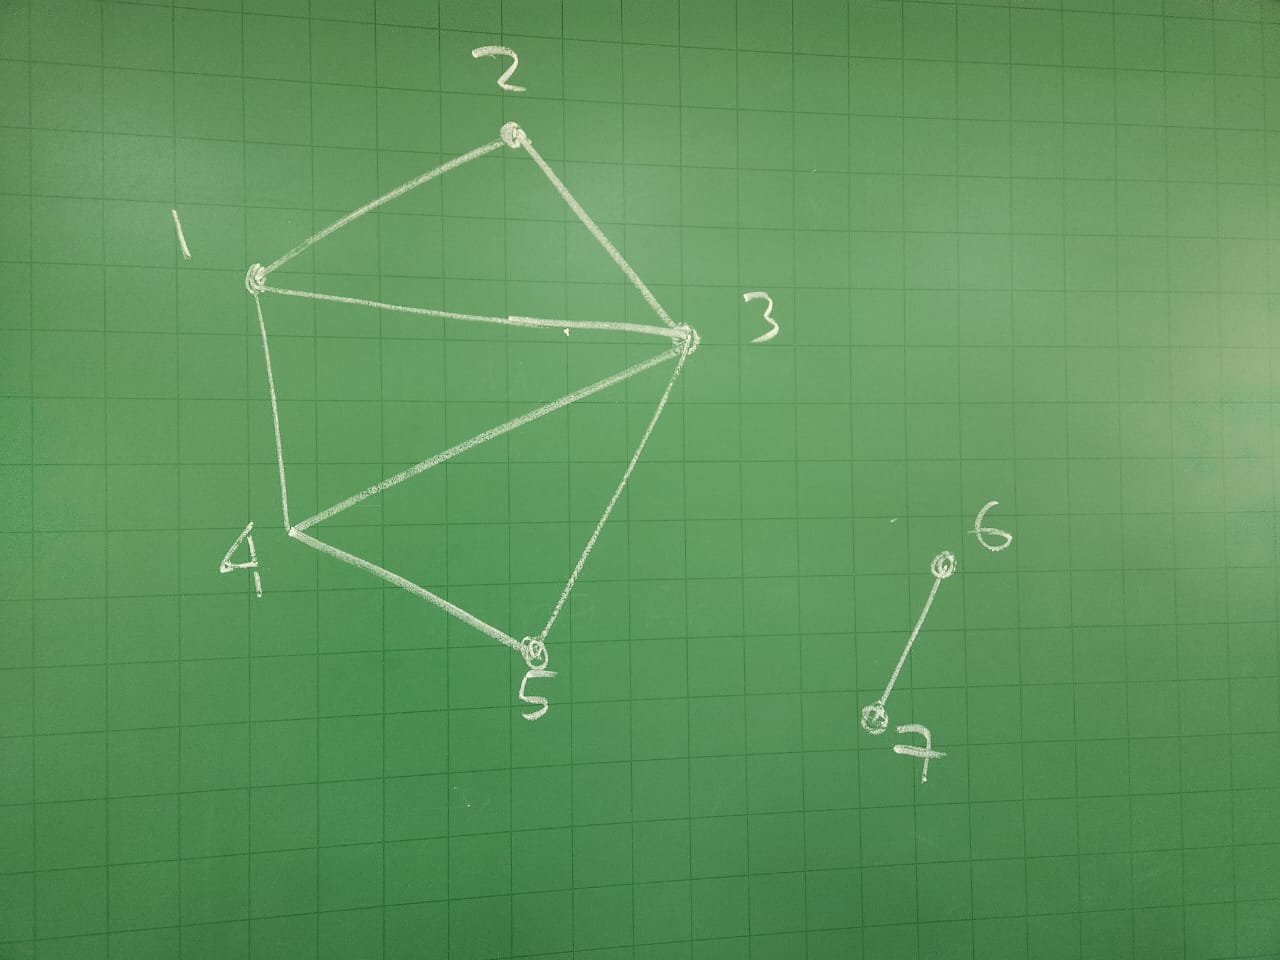 2
1
3
4
5
6
7